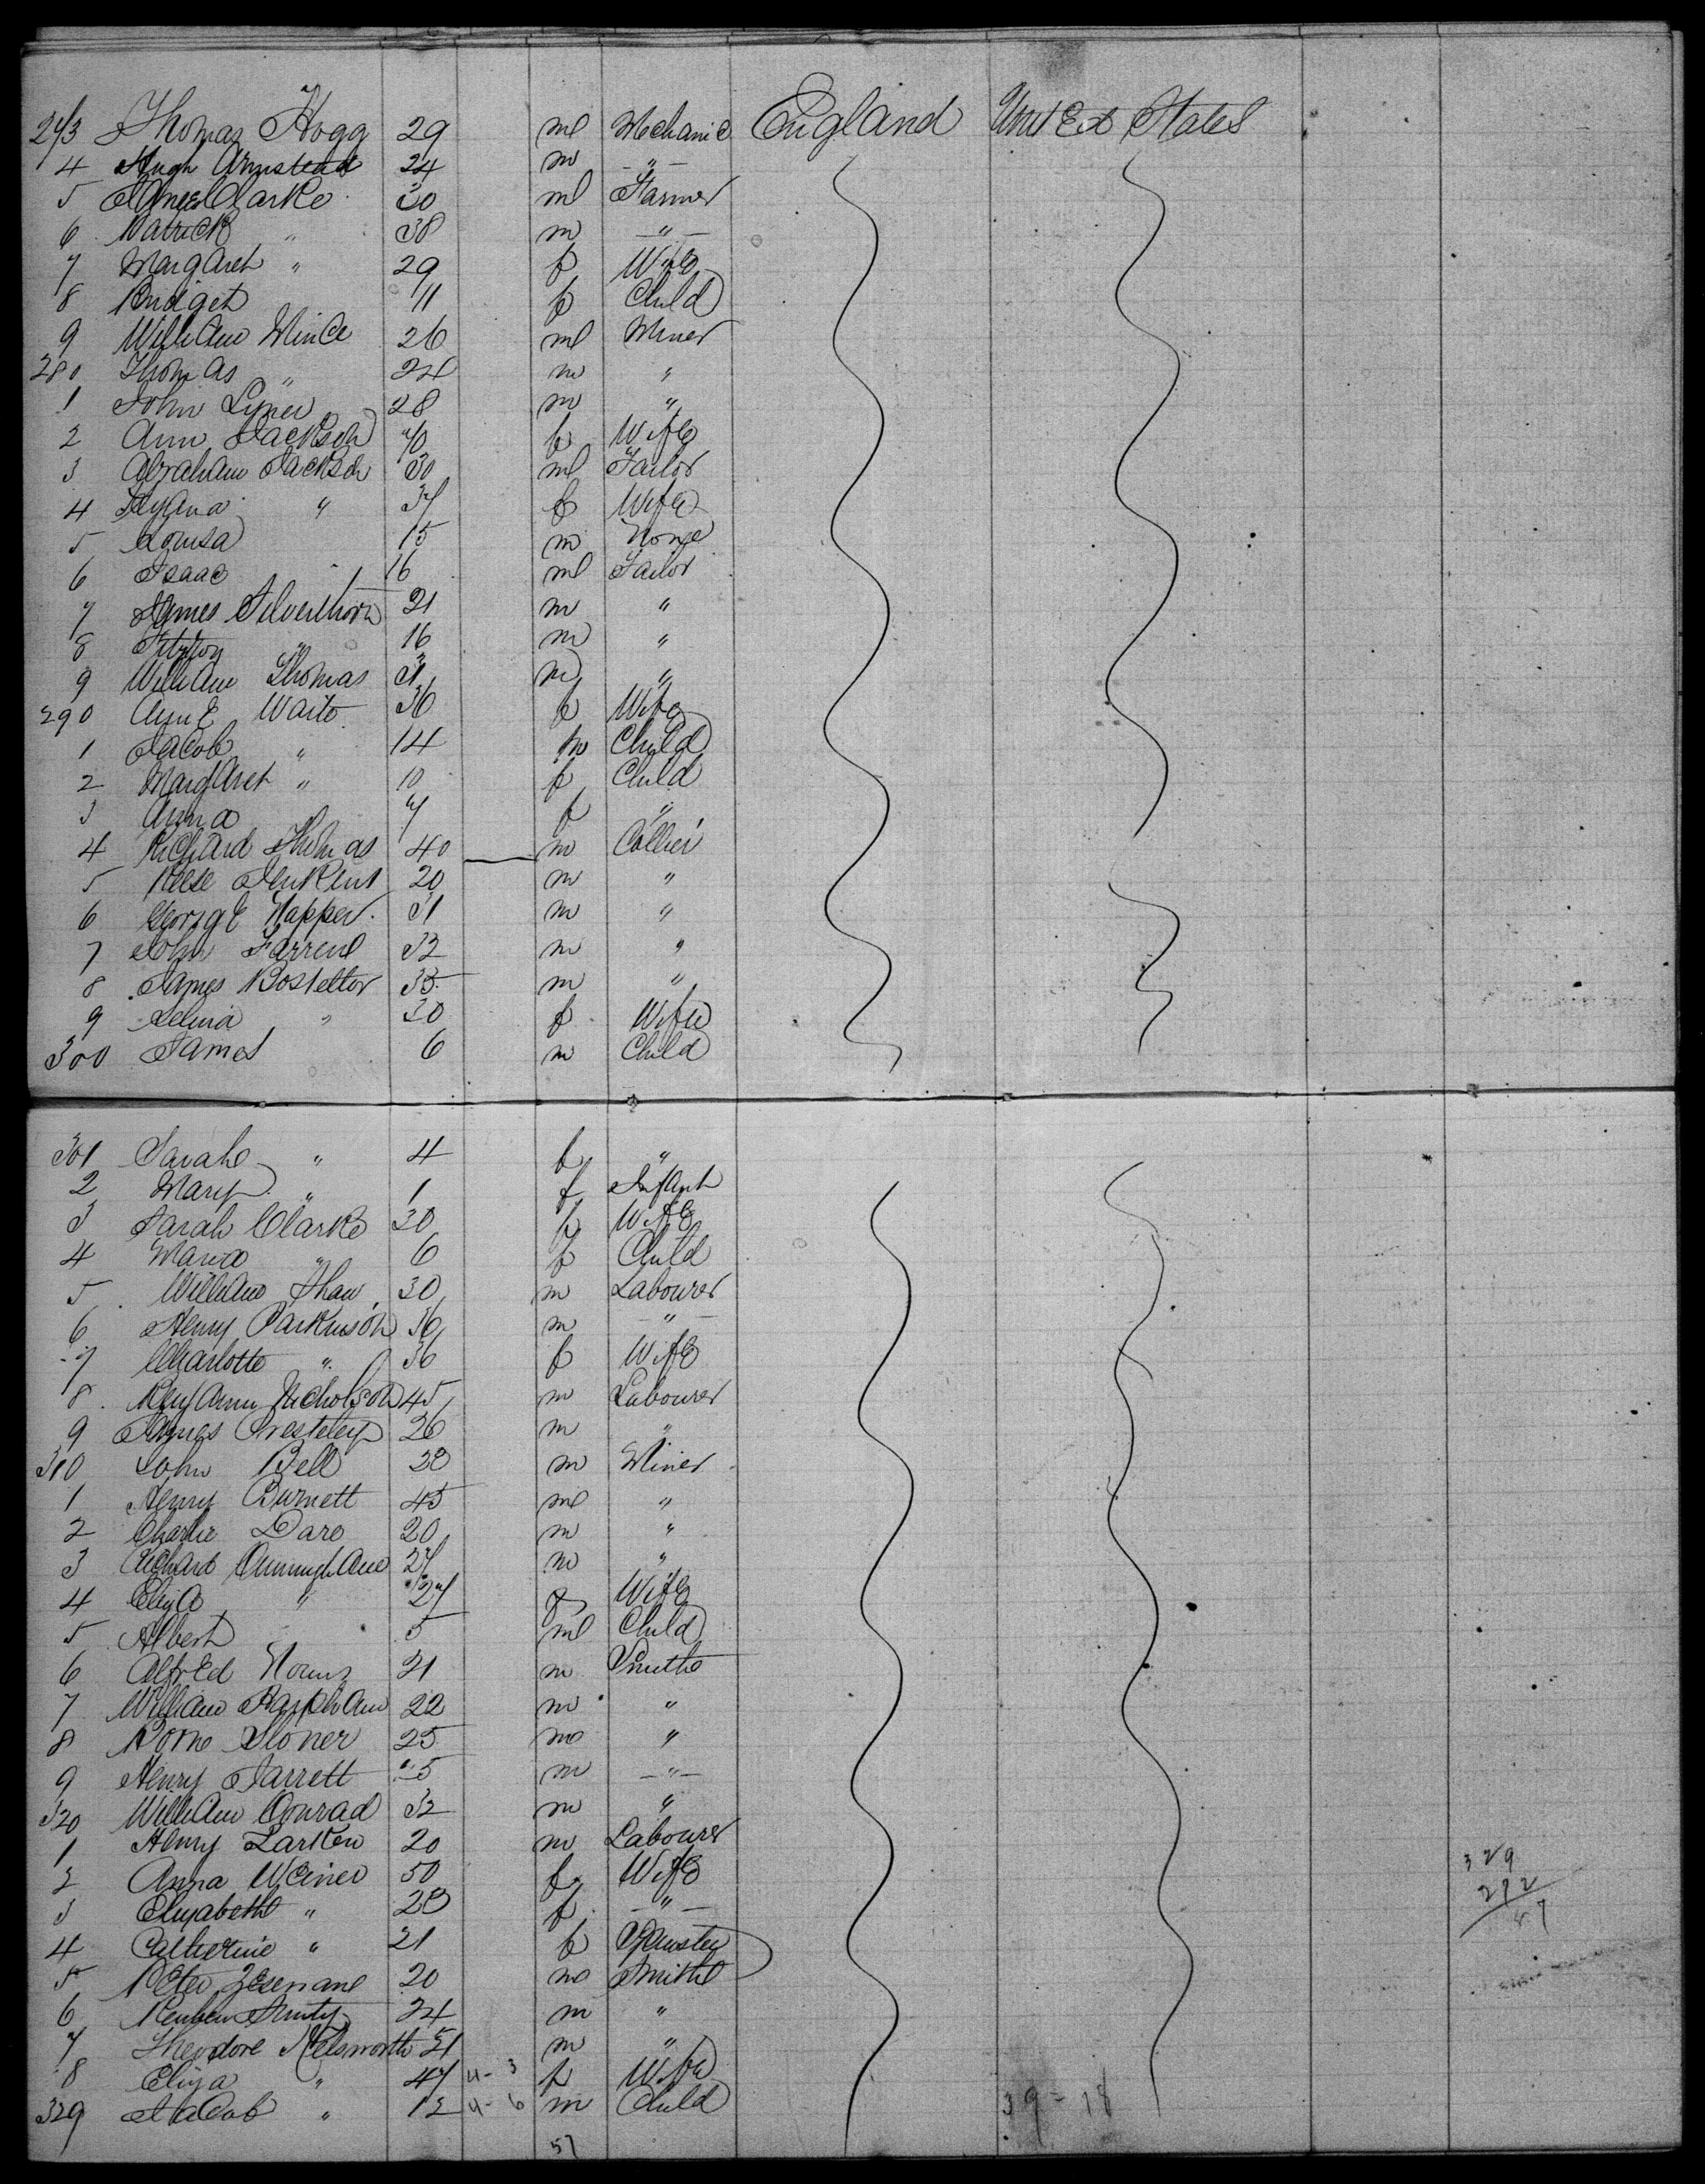 273 Thomas Hogg 29 m Mechanic England United States
4 Hugh Armstead 24 m - " -
5 James Clarke 30 m Farmer
6 Patrick " 38 m - " -
7 Margaret " 29 f Wife
8 Bridget 11 f Child
9 William Mince 26 m Miner
280 Thomas " 24 m "
1 John 28 m "
2 Ann Jackson 70 f Wife
3 Abraham Jackson 30 m Tailor
4 " 37 f Wife
5 Louisa 15 m None
6 Isaac 16 m Tailor
7 James Silverthorn 21 m "
8 Fitzroy " 16 m "
9 William Thomas 31 m "
290 Ann E Waite 36 f Wife
1 Jacob " 14 m Child
2 Margaret " 10 f Child
3 Anna 7 f "
4 Richard Thomas 40 m Collier
5 Reese Jenkins 20 m "
6 George Napper 31 m "
7 John Farrend 32 m "
8 James Bostettor 35 m "
9 Selina " 30 f Wife
300 James 6 m Child
301 Sarah " 4 f "
2 Mary " 1 f Infant
3 Sarah Clarke 30 f Wife
4 Maria " 6 f Child
5 William Shaw 30 m Labourer
6 Henry Parkinson 36 m - " -
7 Charlotte " 36 f Wife
8 Benjamin Nicholson 45 m Labourer
9 James 26 m "
310 John Bell 28 m Miner
1 Henry Burnett 45 m "
2 Charlie Dare 20 m "
3 Richard Cunningham 27 m "
4 Eliza " 27 f Wife
5 Albert 5 m Child
6 Alfred 21 m Smith
7 William 22 m "
8 Stoner 25 m "
9 Henry Jarrett 25 m - " -
320 William Conrad 32 m "
1 Henry Larken 20 m Labourer
2 Anna Weiner 50 f Wife
3 Elizabeth " 28 f - " -
4 Catherine " 21 f Spinster
5 Peter 20 m Smith
6 Reuben 24 m "
7 Theodore Nelsworth 51 m "
8 Eliza " 47 4-3 f Wife
329 Jacob " 12 4-6 m Child
329
272
57
39 = 18
57